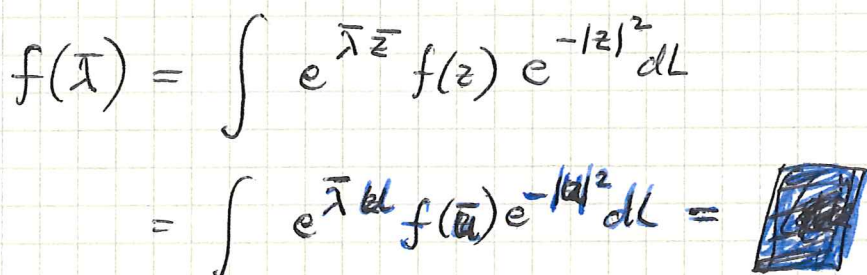 f(λ̄) = ∫ e^{λ̄ z̄} f(z) e^{-|z|²} dL
= ∫ e^{λ̄ u} f(ū) e^{-|u|²} dL =